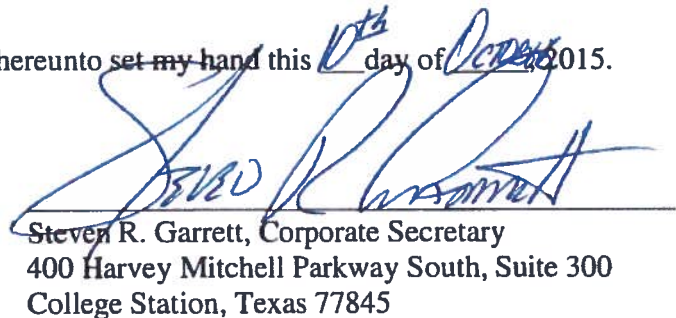 hereunto set my hand this 10th day of October, 2015.
Steven R. Garrett
Steven R. Garrett, Corporate Secretary
400 Harvey Mitchell Parkway South, Suite 300
College Station, Texas 77845